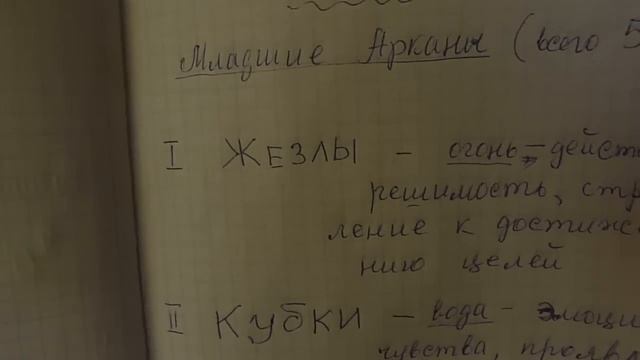 Младшие Арканы (всего 5
I ЖЕЗЛЫ – огонь – действ
решимость, стр
ление к достиже
нию целей
II КУБКИ – вода – эмоци
чувства, проявл